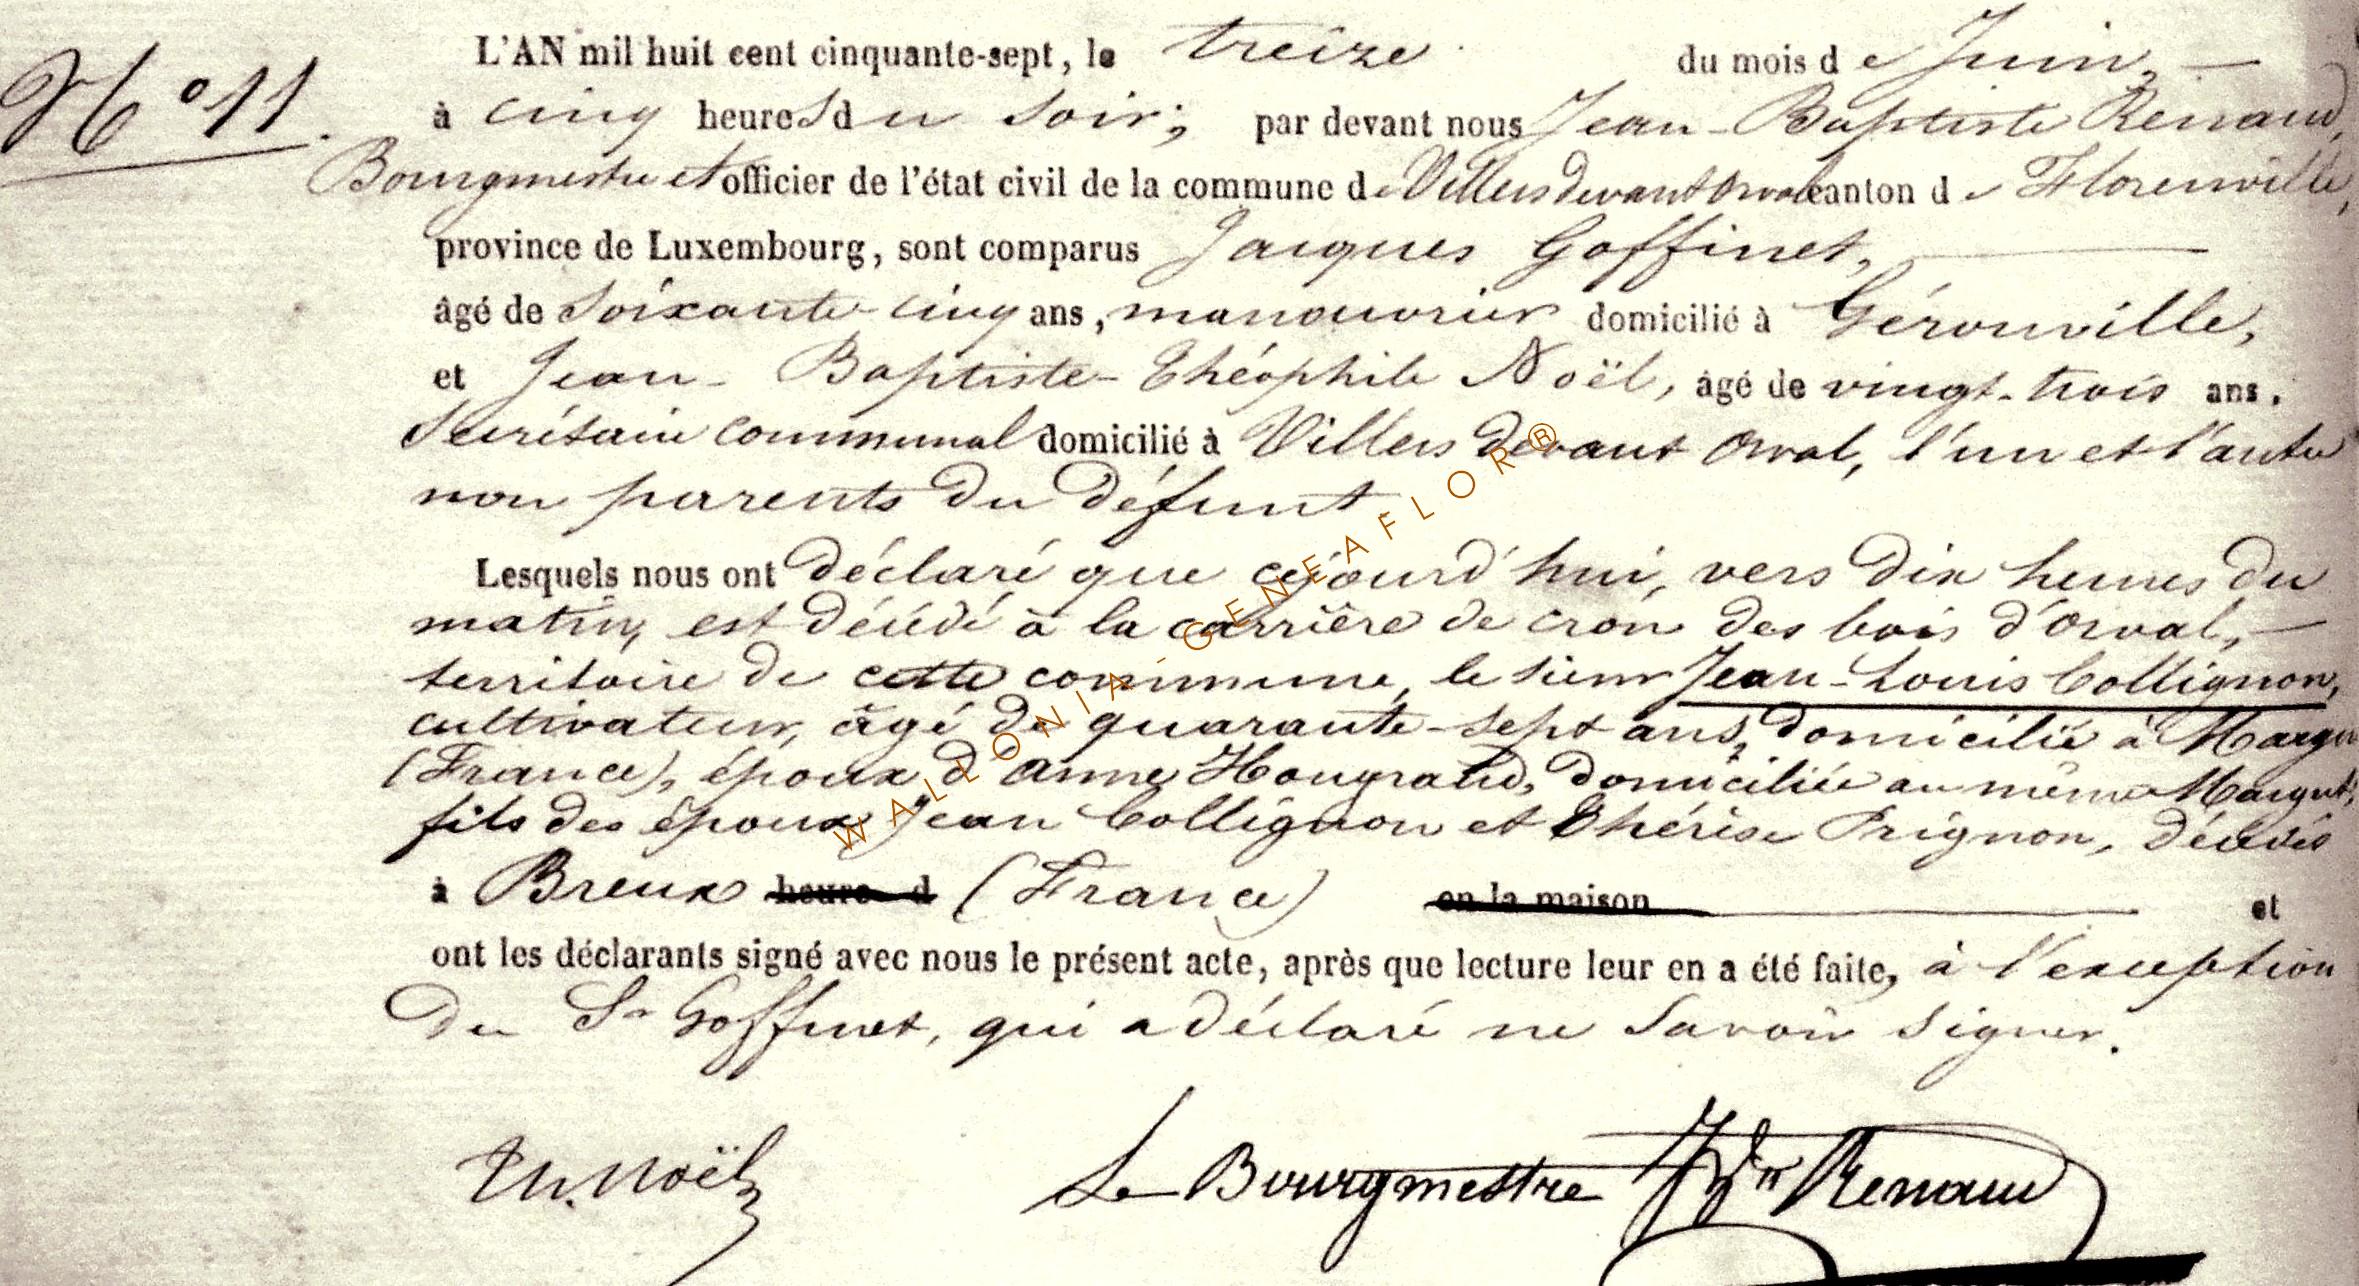 N° 11.
L'AN mil huit cent cinquante-sept, le treize du mois de Juin,
à cinq heures du soir; par devant nous Jean-Baptiste Renaud,
Bourgmestre et officier de l'état civil de la commune de Villers devant Orval canton de Florenville,
province de Luxembourg, sont comparus Jacques Goffinet,
âgé de soixante-cinq ans, manouvrier domicilié à Gérouville,
et Jean-Baptiste-Théophile Noël, âgé de vingt-trois ans.
Secrétaire communal domicilié à Villers devant Orval, l'un et l'autre
non parents du défunt.
Lesquels nous ont déclaré que cejourd'hui, vers dix heures du
matin, est décédé à la carrière de cron des bois d'Orval,
territoire de cette commune, le sieur Jean-Louis Collignon,
cultivateur, âgé de quarante-sept ans, domicilié à Margut
(France), époux d'Anne Hougrand, domiciliée au même Margut,
fils des époux Jean Collignon et Thérèse Prignon, décédés
à Breux heure d (France) en la maison et
ont les déclarants signé avec nous le présent acte, après que lecture leur en a été faite, à l'exception
du Sr Goffinet, qui a déclaré ne savoir signer.
Th. Noël
Le Bourgmestre JBte Renaud
WALLONIA-GENEAFLOR®